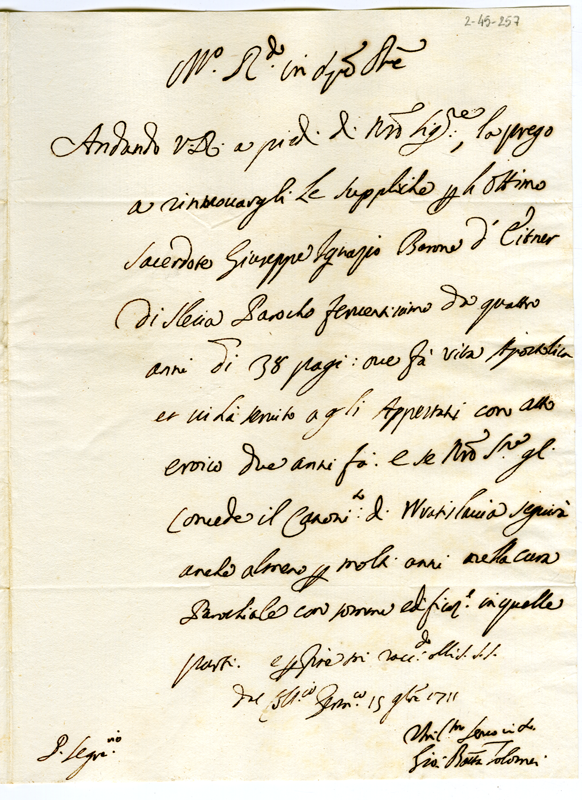 2-45-257
M.º R.do in
Andando V.R. a pied. di Nro Sig.re, la prego
a rinnovargli le suppliche p l'ottimo
sacerdote Giuseppe Ignazio Barone d'
di Slesia Parocho ferventissimo da quattro
anni di 38 pagi: ove fà vita Apostolica
et ivi hà servito agli Appestati con atto
eroico due anni fà. e se Nro Sre gl.
concede il Canoni.to di Wratislavia seguirà
anche almeno p molti anni nella cura
Parochiale con somma edificaz.e in quelle
parti. e p fine mi racc.do alli S.S. S.S.
dal Coll.o Germ.co 15 1711
P. Segr.rio
Gio. Batta Tolomei